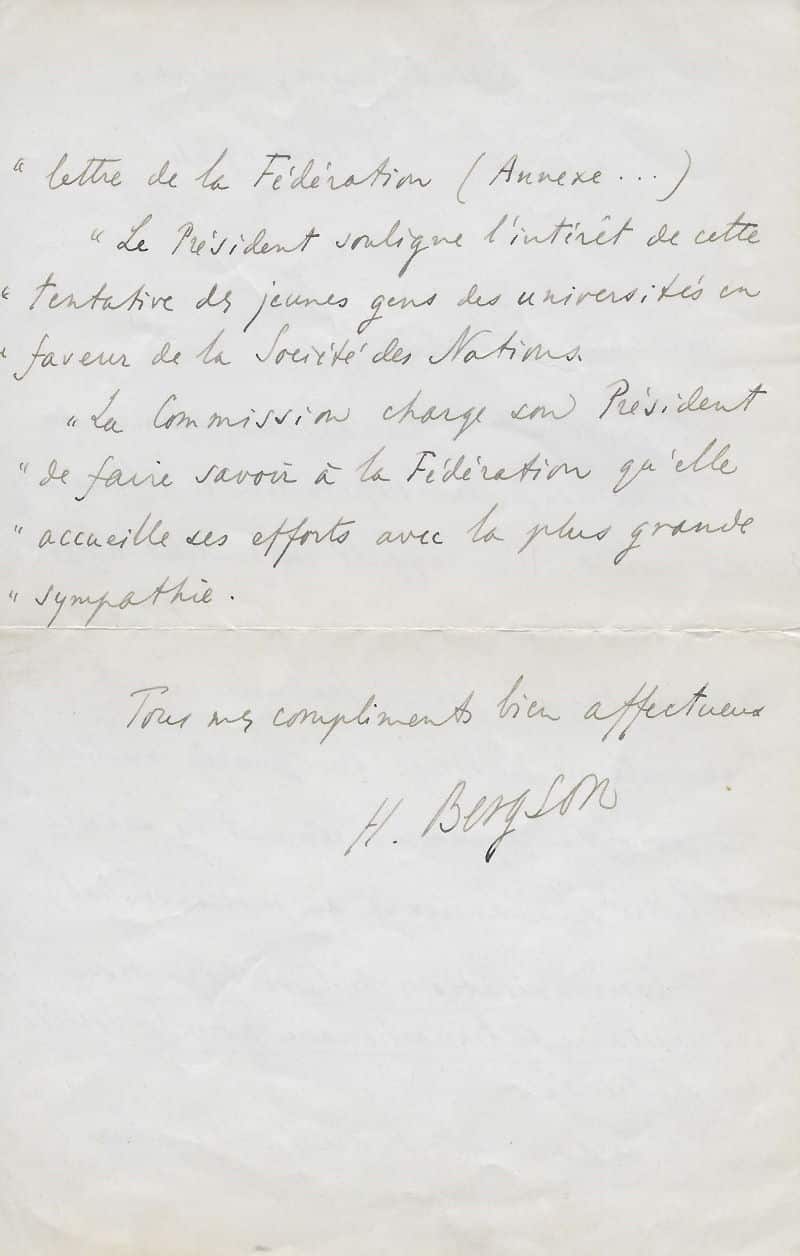 " lettre de la Fédération (Annexe...)
" Le Président souligne l'intérêt de cette
" tentative des jeunes gens des universités en
" faveur de la Société des Nations.
" La Commission charge son Président
" de faire savoir à la Fédération qu'elle
" accueille ses efforts avec la plus grande
" sympathie.
Tous mes compliments bien affectueux
H. Bergson